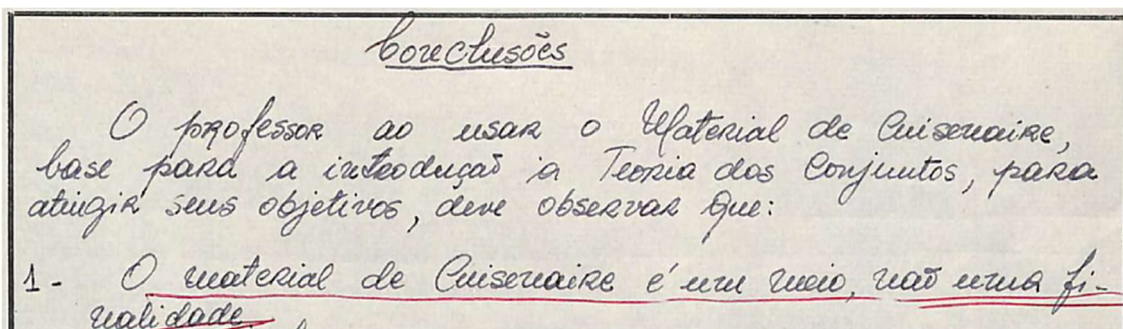 Conclusões
O professor ao usar o Material de Cuisenaire,
base para a introdução à Teoria dos Conjuntos, para
atingir seus objetivos, deve observar que:
1- O material de Cuisenaire é um meio, não uma fi-
nalidade